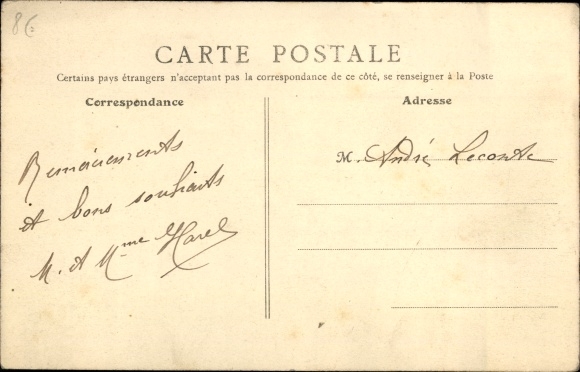 8€
CARTE POSTALE
Certains pays étrangers n'acceptant pas la correspondance de ce côté, se renseigner à la Poste
Correspondance
Remerciements
et bons souhaits
M. et Mme Harel
Adresse
M. André Leconte